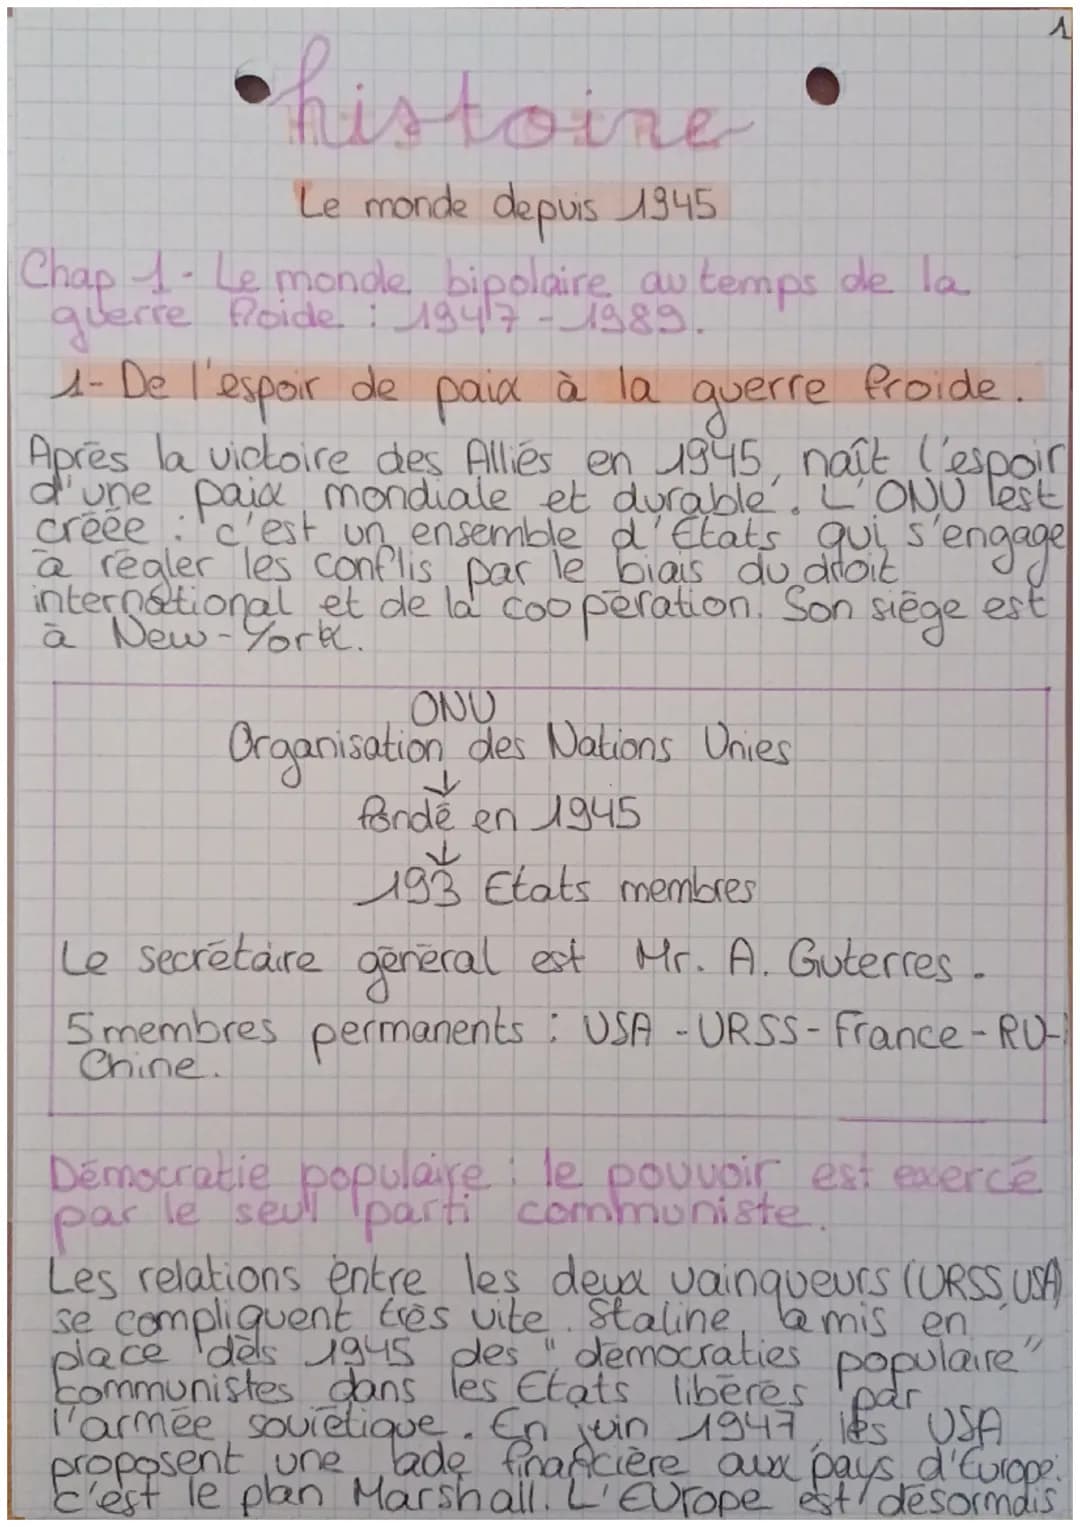 1
histoire
Le monde depuis 1945
Chap 1- Le monde bipolaire au temps de la
guerre froide : 1947 - 1989.
1- De l'espoir de paix à la guerre froide.
Après la victoire des Alliés en 1945, naît l'espoir
d'une paix mondiale et durable. L'ONU est
créée : c'est un ensemble d'États qui s'engage
à régler les conflis par le biais du droit
international et de la coopération. Son siège est
à New-York.
ONU
Organisation des Nations Unies
↓
fondé en 1945
↓
193 Etats membres
Le secrétaire général est Mr. A. Guterres.
5 membres permanents : USA - URSS - France - RU-
Chine.
Démocratie populaire : le pouvoir est exercé
par le seul parti communiste.
Les relations entre les deux vainqueurs (URSS, USA)
se compliquent très vite. Staline, a mis en
place dès 1945 des "démocraties populaire"
communistes dans les Etats libérés par
l'armée soviétique. En juin 1947, les USA
proposent une aide financière aux pays d'Europe:
c'est le plan Marshall. L'Europe est désormais